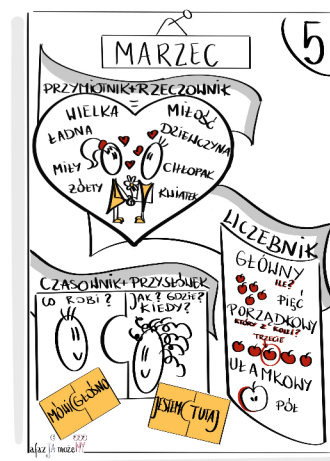 MARZEC
5
PRZYMIOTNIK+RZECZOWNIK
=
WIELKA MIŁOŚĆ
ŁADNA DZIEWCZYNA
MIŁY CHŁOPAK
ŻÓŁTY KWIATEK
LICZEBNIK
GŁÓWNY
ILE?
PIĘĆ
PORZĄDKOWY
KTÓRY Z KOLEI?
TRZECIE
UŁAMKOWY
PÓŁ
CZASOWNIK+PRZYSŁÓWEK
CO ROBI? JAK? GDZIE?
KIEDY?
MÓWI GŁOŚNO
JESTEM TUTAJ